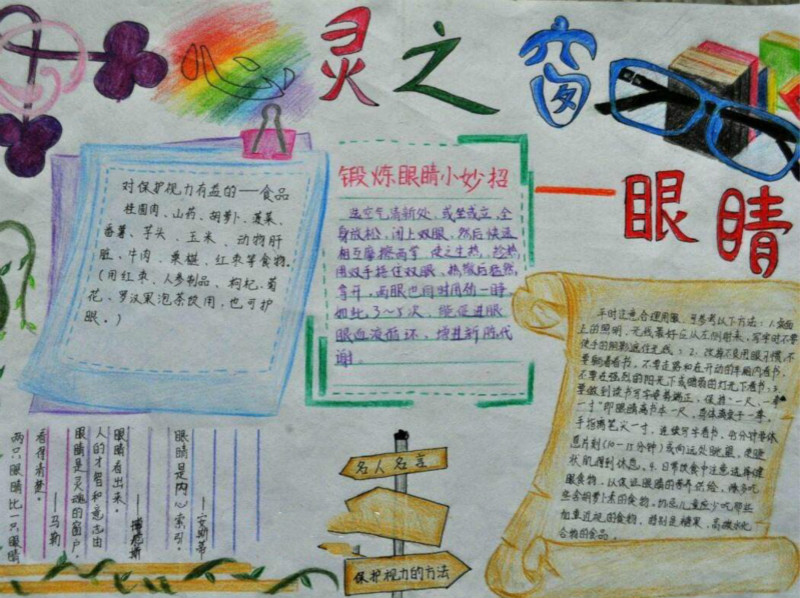 心灵之窗
——眼睛
对保护视力有益的——食品
桂圆肉、山药、胡萝卜、菠菜、
番薯、芋头、玉米、动物肝
脏、牛肉、桑椹、红枣等食物。
(用红枣、人参制品、枸杞、菊
花、罗汉果泡茶饮用,也可护
眼。)
锻炼眼睛小妙招
选空气清新处,或坐或立,全
身放松,闭上双眼,然后快速
相互摩擦两掌,使之生热,趁热
用双手捂住双眼,热散后猛然
拿开,两眼也同时用劲一睁,
如此3~5次,能促进眼
眼血液循环,增进新陈代
谢。
平时注意合理用眼,可参考以下方法:1.桌面
上的照明,光线最好应从左侧射来,写字时不要
使手的阴影遮住光线;2.改掉不良用眼习惯,不
要躺着看书,不要走路和在开动的车厢内看书,
不要在强烈的阳光下或暗弱的灯光下看书;3.
要做到读书写字姿势端正,保持"一尺、一拳、
一寸"即眼睛离书本一尺,身体离桌子一拳,
手指离笔尖一寸,连续写字看书,
息片刻(10-15分钟)或向远处眺望,使眼
状肌得到休息。4.日常饮食中注意选择健
眼食物,以保证眼睛的营养供给,
些含胡萝卜素的食物。
加重近视的食物,特别是糖果、高碳水化
合物的食品。
两只眼睛比一只眼睛
看得清楚。
——马勒
眼睛是灵魂的窗户,
人的才智和意志由
眼睛看出来。
眼睛是内心索引。
——安斯蒂
名人名言
保护视力的方法